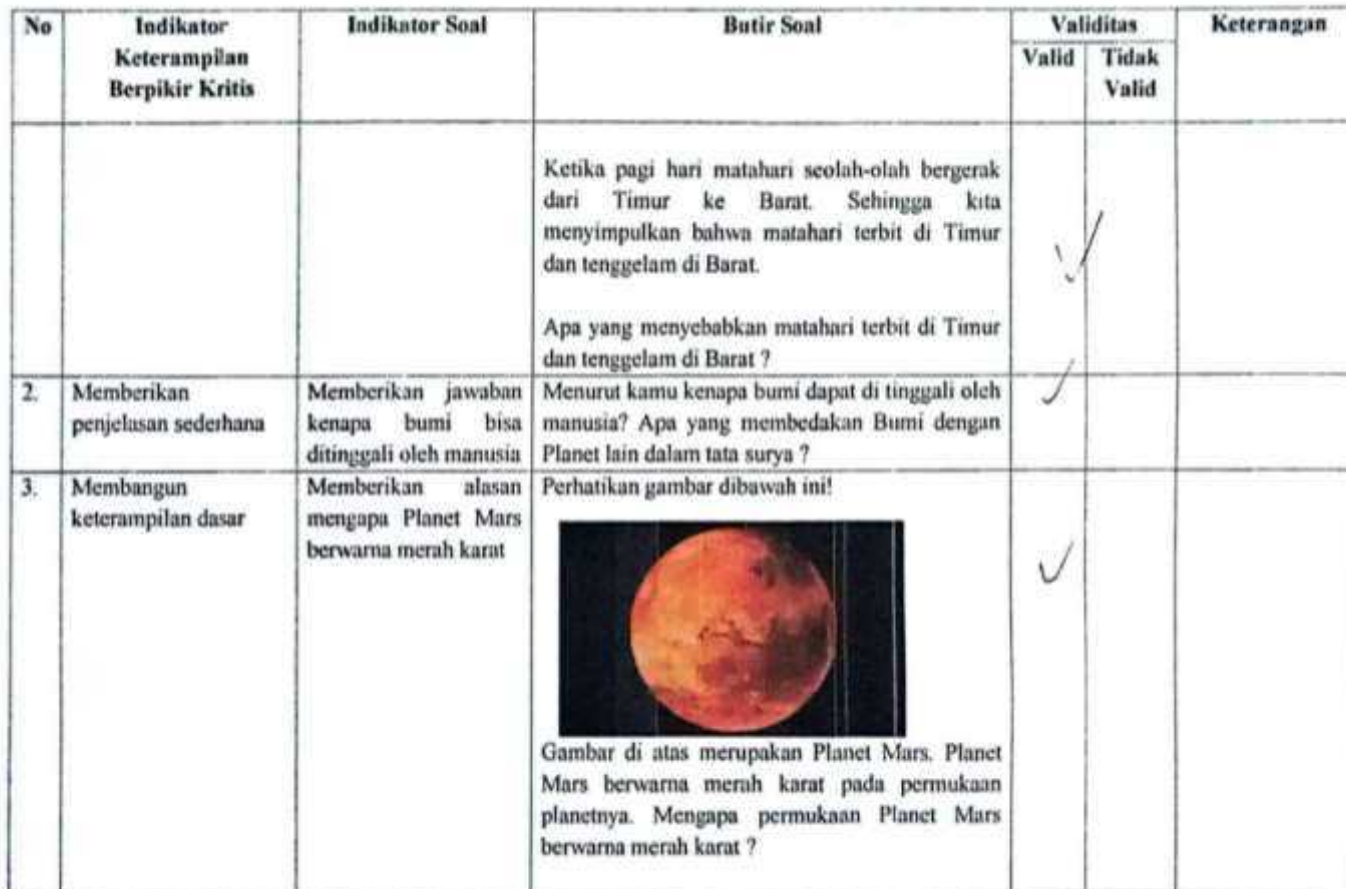 No
Indikator
Keterampilan
Berpikir Kritis
Indikator Soal
Butir Soal
Validitas
Valid
Tidak
Valid
Keterangan
Ketika pagi hari matahari seolah-olah bergerak
dari Timur ke Barat. Sehingga kita
menyimpulkan bahwa matahari terbit di Timur
dan tenggelam di Barat.
Apa yang menyebabkan matahari terbit di Timur
dan tenggelam di Barat ?
2.
Memberikan
penjelasan sederhana
Memberikan jawaban
kenapa bumi bisa
ditinggali oleh manusia
Menurut kamu kenapa bumi dapat di tinggali oleh
manusia? Apa yang membedakan Bumi dengan
Planet lain dalam tata surya ?
3.
Membangun
keterampilan dasar
Memberikan alasan
mengapa Planet Mars
berwarna merah karat
Perhatikan gambar dibawah ini!
Gambar di atas merupakan Planet Mars. Planet
Mars berwarna merah karat pada permukaan
planetnya. Mengapa permukaan Planet Mars
berwarna merah karat ?